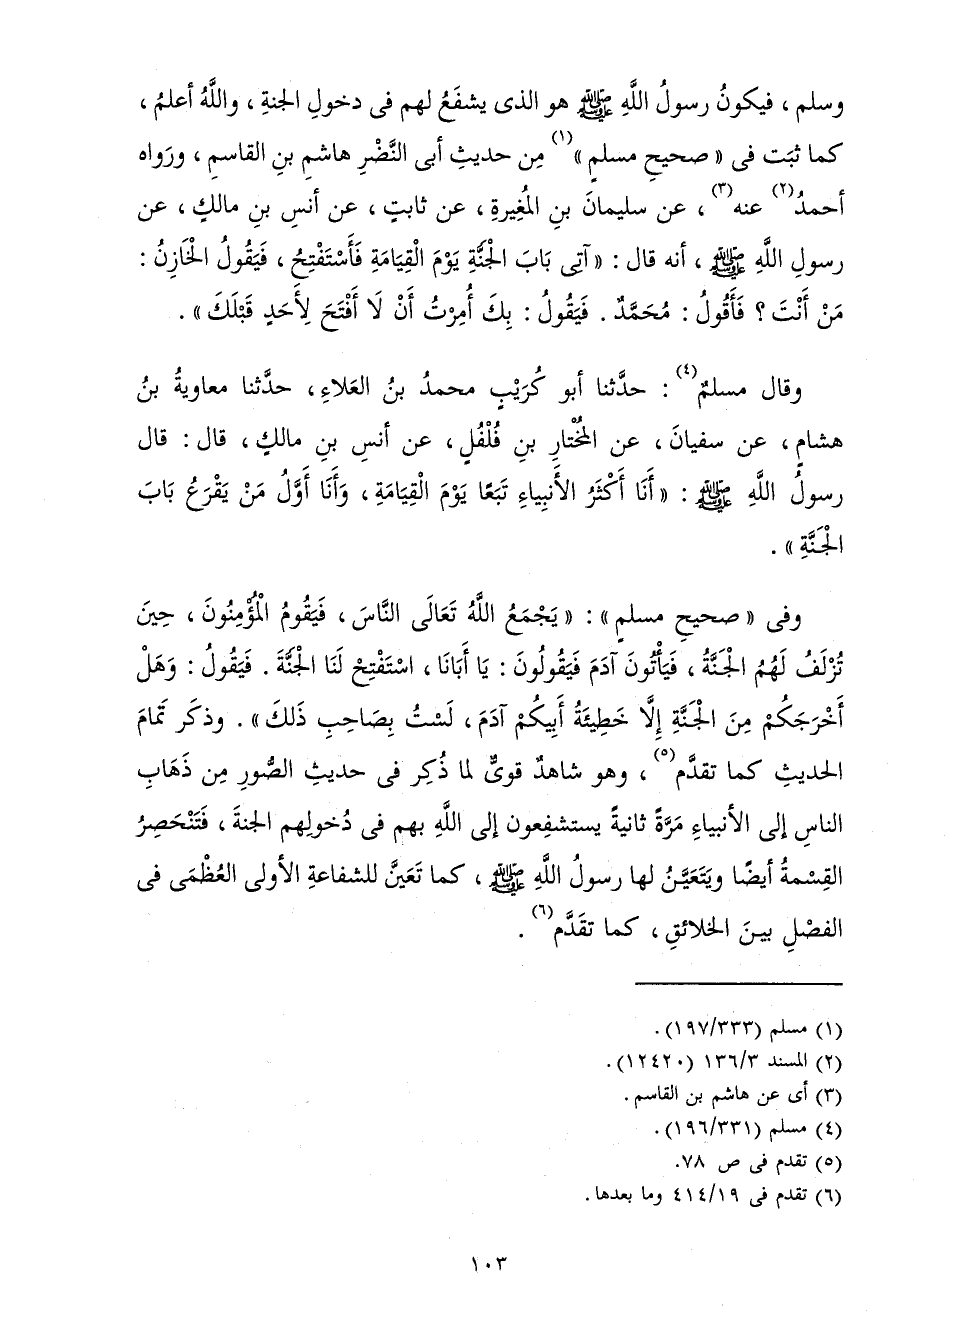 وسلم ، فيكونُ رسولُ اللَّهِ ﷺ هو الذى يشفَعُ لهم فى دخولِ الجنةِ ، واللَّهُ أعلمُ ،
كما ثبَت فى « صحيحِ مسلمٍ »(١) مِن حديثِ أبى النَّضْرِ هاشمِ بنِ القاسمِ ، ورَواه
أحمدُ(٢) عنه(٣) ، عن سليمانَ بنِ المُغِيرةِ ، عن ثابتٍ ، عن أنسِ بنِ مالكٍ ، عن
رسولِ اللَّهِ ﷺ ، أنه قال : « آتِى بَابَ الْجَنَّةِ يَوْمَ الْقِيَامَةِ فَأَسْتَفْتِحُ ، فَيَقُولُ الْخَازِنُ :
مَنْ أَنْتَ ؟ فَأَقُولُ : مُحَمَّدٌ . فَيَقُولُ : بِكَ أُمِرْتُ أَنْ لَا أَفْتَحَ لِأَحَدٍ قَبْلَكَ » .
وقال مسلمٌ(٤) : حدَّثنا أبو كُرَيْبٍ محمدُ بنُ العَلاءِ ، حدَّثنا معاويةُ بنُ
هشامٍ ، عن سفيانَ ، عن المُخْتارِ بنِ فُلْفُلٍ ، عن أنسِ بنِ مالكٍ ، قال : قال
رسولُ اللَّهِ ﷺ : « أَنَا أَكْثَرُ الأَنْبِيَاءِ تَبَعًا يَوْمَ الْقِيَامَةِ ، وَأَنَا أَوَّلُ مَنْ يَقْرَعُ بَابَ
الْجَنَّةِ » .
وفى « صحيحِ مسلمٍ » : « يَجْمَعُ اللَّهُ تَعَالَى النَّاسَ ، فَيَقُومُ الْمُؤْمِنُونَ ، حِينَ
تُزْلَفُ لَهُمُ الْجَنَّةُ ، فَيَأْتُونَ آدَمَ فَيَقُولُونَ : يَا أَبَانَا ، اسْتَفْتِحْ لَنَا الْجَنَّةَ . فَيَقُولُ : وَهَلْ
أَخْرَجَكُمْ مِنَ الْجَنَّةِ إِلَّا خَطِيئَةُ أَبِيكُمْ آدَمَ ، لَسْتُ بِصَاحِبِ ذَلكَ » . وذكَر تَمَامَ
الحديثِ كما تقدَّم(٥) ، وهو شاهدٌ قوىٌّ لما ذُكِر فى حديثِ الصُّورِ مِن ذَهَابِ
الناسِ إلى الأنبياءِ مَرَّةً ثانيةً يستشفِعون إلى اللَّهِ بهم فى دُخولِهم الجنةَ ، فَتَنْحَصِرُ
القِسْمةُ أيضًا ويَتَعَيَّنُ لها رسولُ اللَّهِ ﷺ ، كما تَعَيَّنَ للشفاعةِ الأولى العُظْمَى فى
الفصْلِ بينَ الخلائقِ ، كما تقَدَّم(٦) .
(١) مسلم (١٩٧/٣٣٣) .
(٢) المسند ١٣٦/٣ (١٢٤٢٠) .
(٣) أى عن هاشم بن القاسم .
(٤) مسلم (١٩٦/٣٣١) .
(٥) تقدم فى ص ٧٨.
(٦) تقدم فى ٤١٤/١٩ وما بعدها .
١٠٣